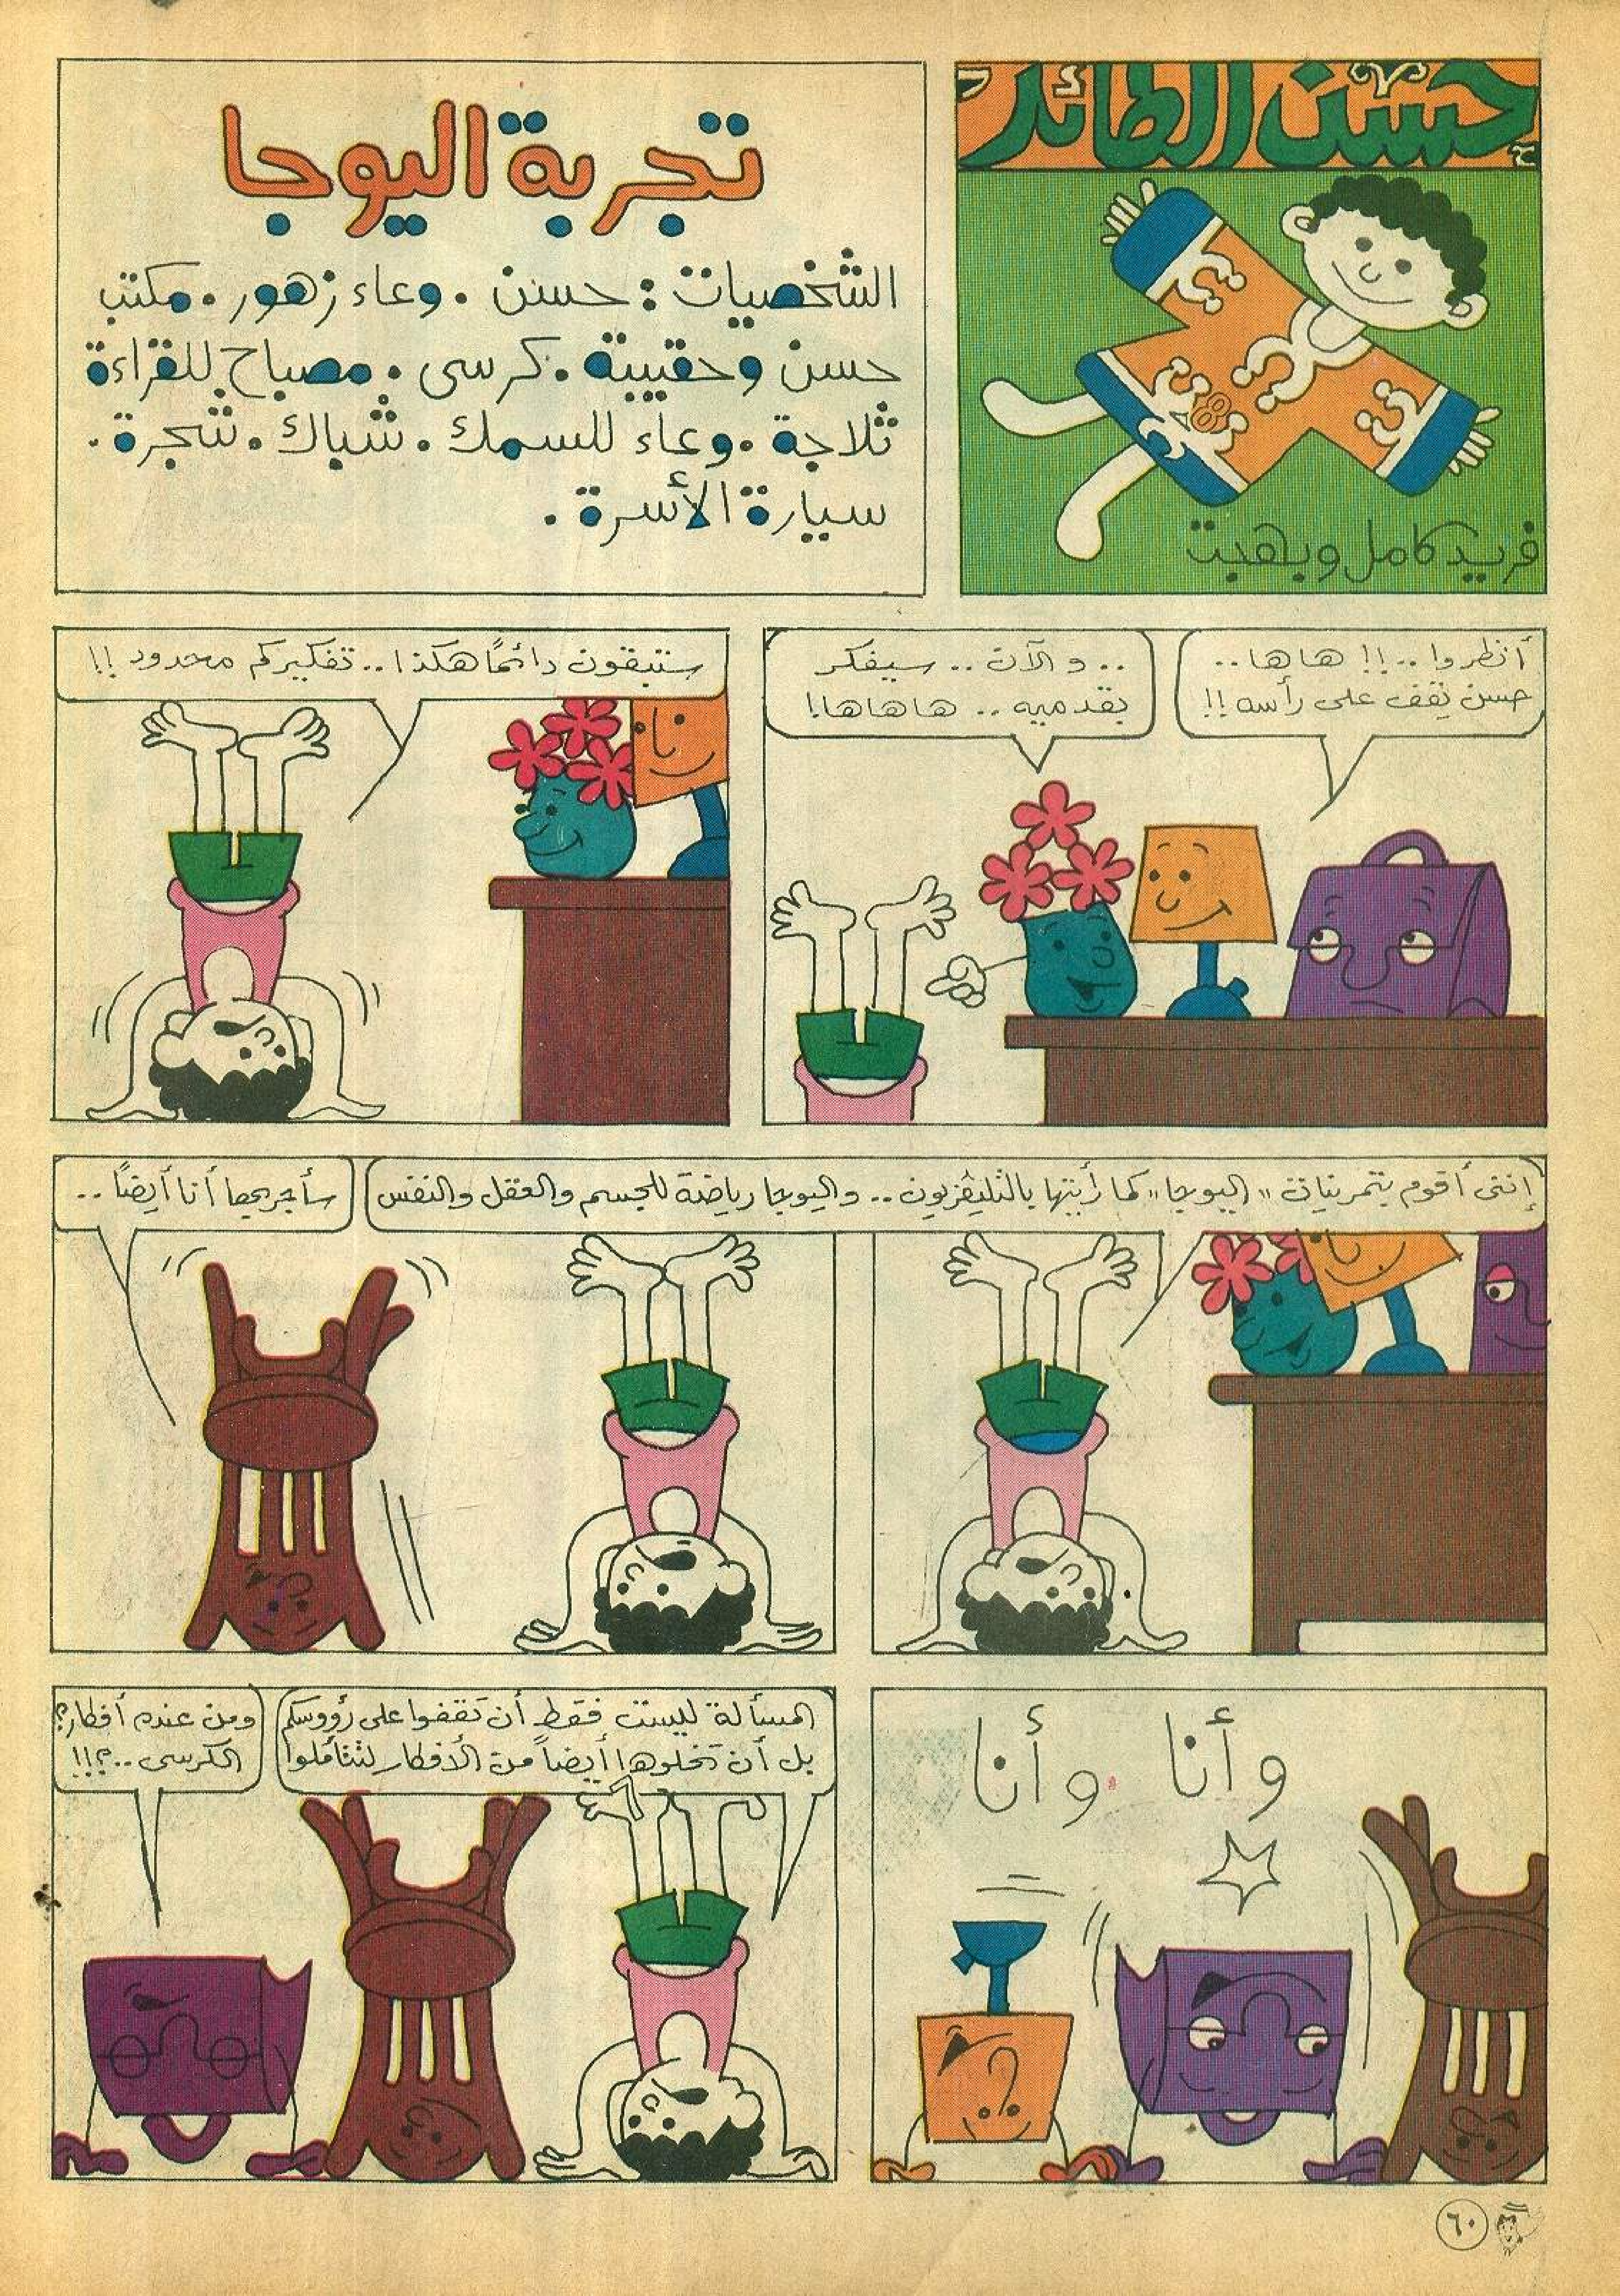 حسن الطائر
٧٨
فريد كامل وبهجت
تجربة اليوجا
الشخصيات : حسن . وعاء زهور . مكتب
حسن وحقيبته . كرسى . مصباح للقراءة
ثلاجة . وعاء للسمك . شباك . شجرة .
سيارة الأسرة .
أنظروا ..!! هاها ..
حسن يقف على رأسه !!
.. والآن .. سيفكر
بقدميه .. هاهاها !
ستبقون دائماً هكذا .. تفكيركم محدود !!
إننى أقوم بتمرينات "اليوجا" كما رأيتها بالتليفزيون .. واليوجا رياضة للجسم والعقل والنفس
سأجربها أنا أيضاً ..
وأنا وأنا
المسألة ليست فقط أن تقفوا على رؤوسكم
بل أن تخلوها أيضاً من الأفكار لتتأملوا
ومن عنده أفكار؟
الكرسى ..؟!!
٦٠